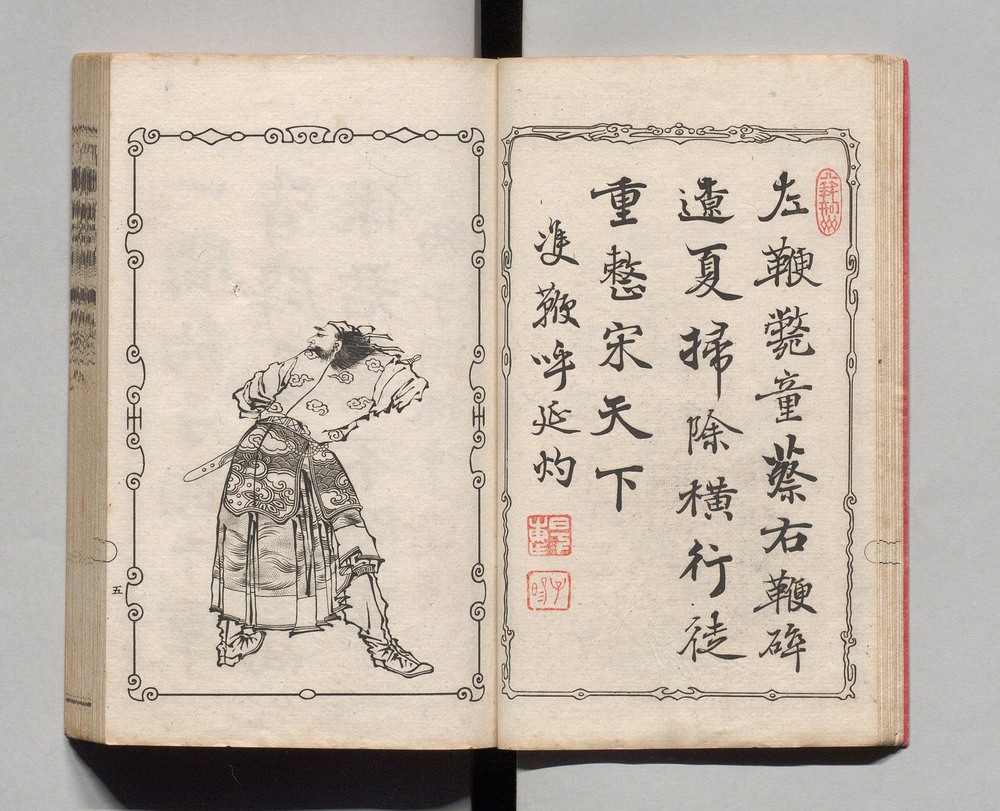 左鞭斃童蔡右鞭碎
遼夏掃除橫行徒
重整宋天下
雙鞭呼延灼
五